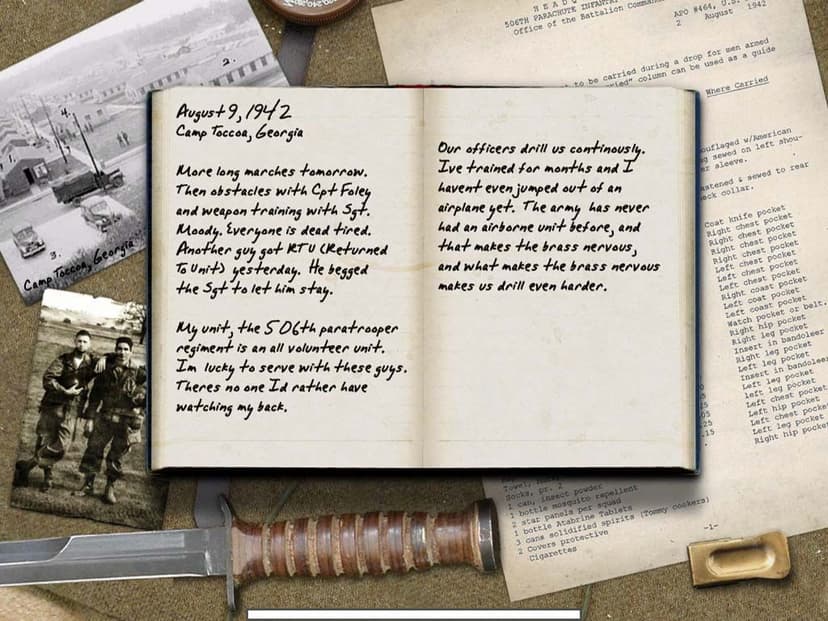 August 9, 1942
Camp Toccoa, Georgia
More long marches tomorrow.
Then obstacles with Cpt Foley
and weapon training with Sgt.
Moody. Everyone is dead tired.
Another guy got RTU (Returned
To Unit) yesterday. He begged
the Sgt to let him stay.
My unit, the 506th paratrooper
regiment is an all volunteer unit.
Im lucky to serve with these guys.
Theres no one Id rather have
watching my back.
Our officers drill us continously.
Ive trained for months and I
havent even jumped out of an
airplane yet. The army has never
had an airborne unit before, and
that makes the brass nervous,
and what makes the brass nervous
makes us drill even harder.
2.
4.
3.
Camp Toccoa, Georgia
H E A D Q
506TH PARACHUTE INFANTRY
Office of the Battalion Comman
APO #464, U.S.
2 August 1942
to be carried during a drop for men armed
column can be used as a guide
Where Carried
ouflaged w/American
g sewed on left shou-
r sleeve.
astened & sewed to rear
eck collar.
Coat knife pocket
Right chest pocket
Right chest pocket
Right chest pocket
Left chest pocket
Left chest pocket
Left chest pocket
Right coast pocket
Left coat pocket
Left coast pocket
Watch pocket or belt.
Right hip pocket
Right leg pocket
Insert in bandoleer
Right leg pocket
Right leg pocket
Insert in bandoleer
Left leg pocket
Left leg pocket
Left chest pocket
Left hip pocket
Left chest pocket
Left leg pocket
Right hip pocket
Socks, pr. 2
1 can, insect powder
1 bottle mosquito repellent
2 star panels per squad
1 bottle Atabrine Tablets
3 cans solidified spirits (Tommy cookers)
2 Covers protective
Cigarettes
-1-